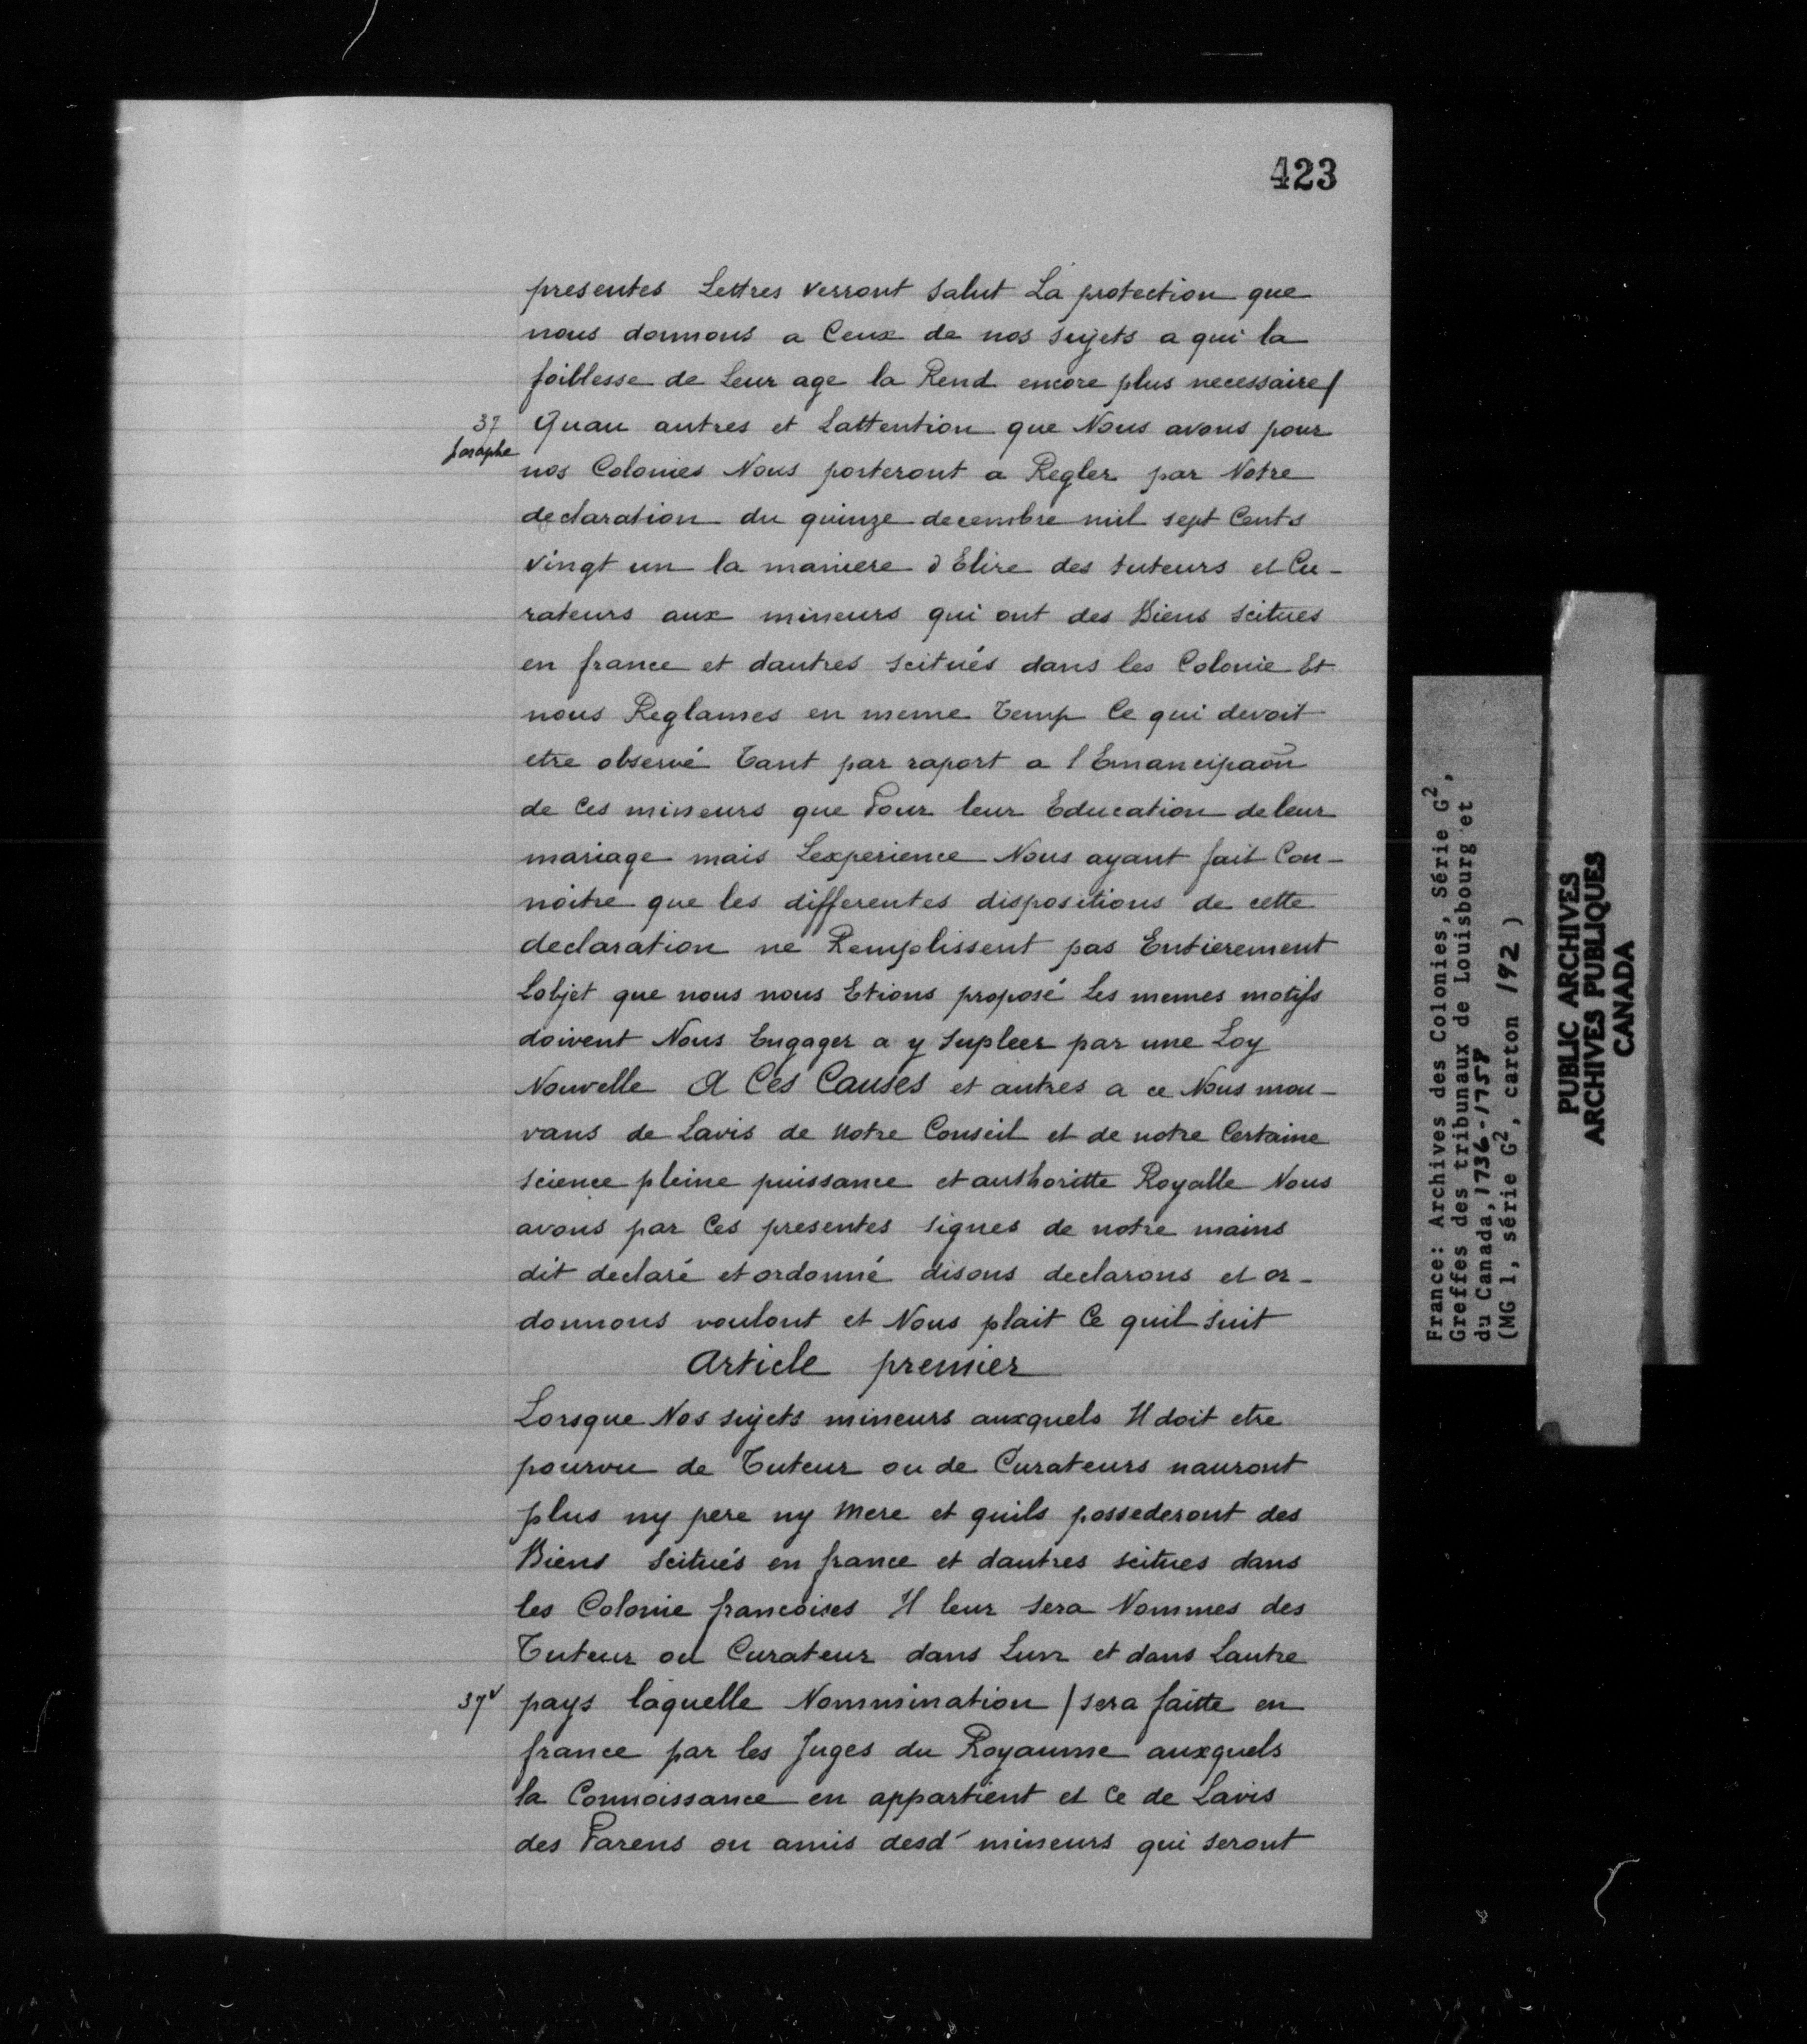 423
presentes Lettres verront Salut La protection que
nous donnons a Ceux de nos sujets a qui la
foiblesse de Leur age la Rend encore plus necessaire/
37 Quau autres et Lattention que Nous avons pour
paraphe
nos Colonies Nous porteront a Regler par Notre
declaration du quinze decembre mil sept Cents
vingt un la maniere d Elire des tuteurs et Cu-
rateurs aux mineurs qui ont des Biens scitues
en france et dautres scitués dans les Colonie Et
nous Reglames en meme Temp Ce qui devoit
etre observé Tant par raport a l Emancipaōn
de Ces mineurs que Pour leur Education de leur
mariage mais Lexperience Nous ayant fait Con-
noitre que les differentes dispositions de cette
declaration ne Remplissent pas Entierement
Lobjet que nous nous Etions proposé Les memes motifs
doivent Nous Engager a y Supleer par une Loy
Nouvelle A Ces Causes et autres a ce Nous mou-
vans de Lavis de Notre Conseil et de notre Certaine
Science pleine puissance et authoritte Royalle Nous
avons par Ces presentes signes de notre mains
dit declaré et ordonné disons declarons et or-
donnons voulont et Nous plait Ce quil Suit
Article premier
Lorsque Nos sujets mineurs auxquels Il doit etre
pourvu de Tuteur ou de Curateurs nauront
plus ny pere ny Mere et quils possederont des
Biens Scitués en france et dautres scitues dans
les Colonie francoises Il leur Sera Nommes des
Tuteur ou Curateur dans Lun et dans Lautre
37v pays laquelle Nommination / sera faitte en
france par les Juges du Royaume auxquels
la Connoissance en appartient et Ce de Lavis
des Parens ou amis desd' mineurs qui seront
France: Archives des Colonies, Série G2,
Greffes des tribunaux de Louisbourg et
du Canada, 1736-1758
(MG 1, série G2, carton 192)
PUBLIC ARCHIVES
ARCHIVES PUBLIQUES
CANADA